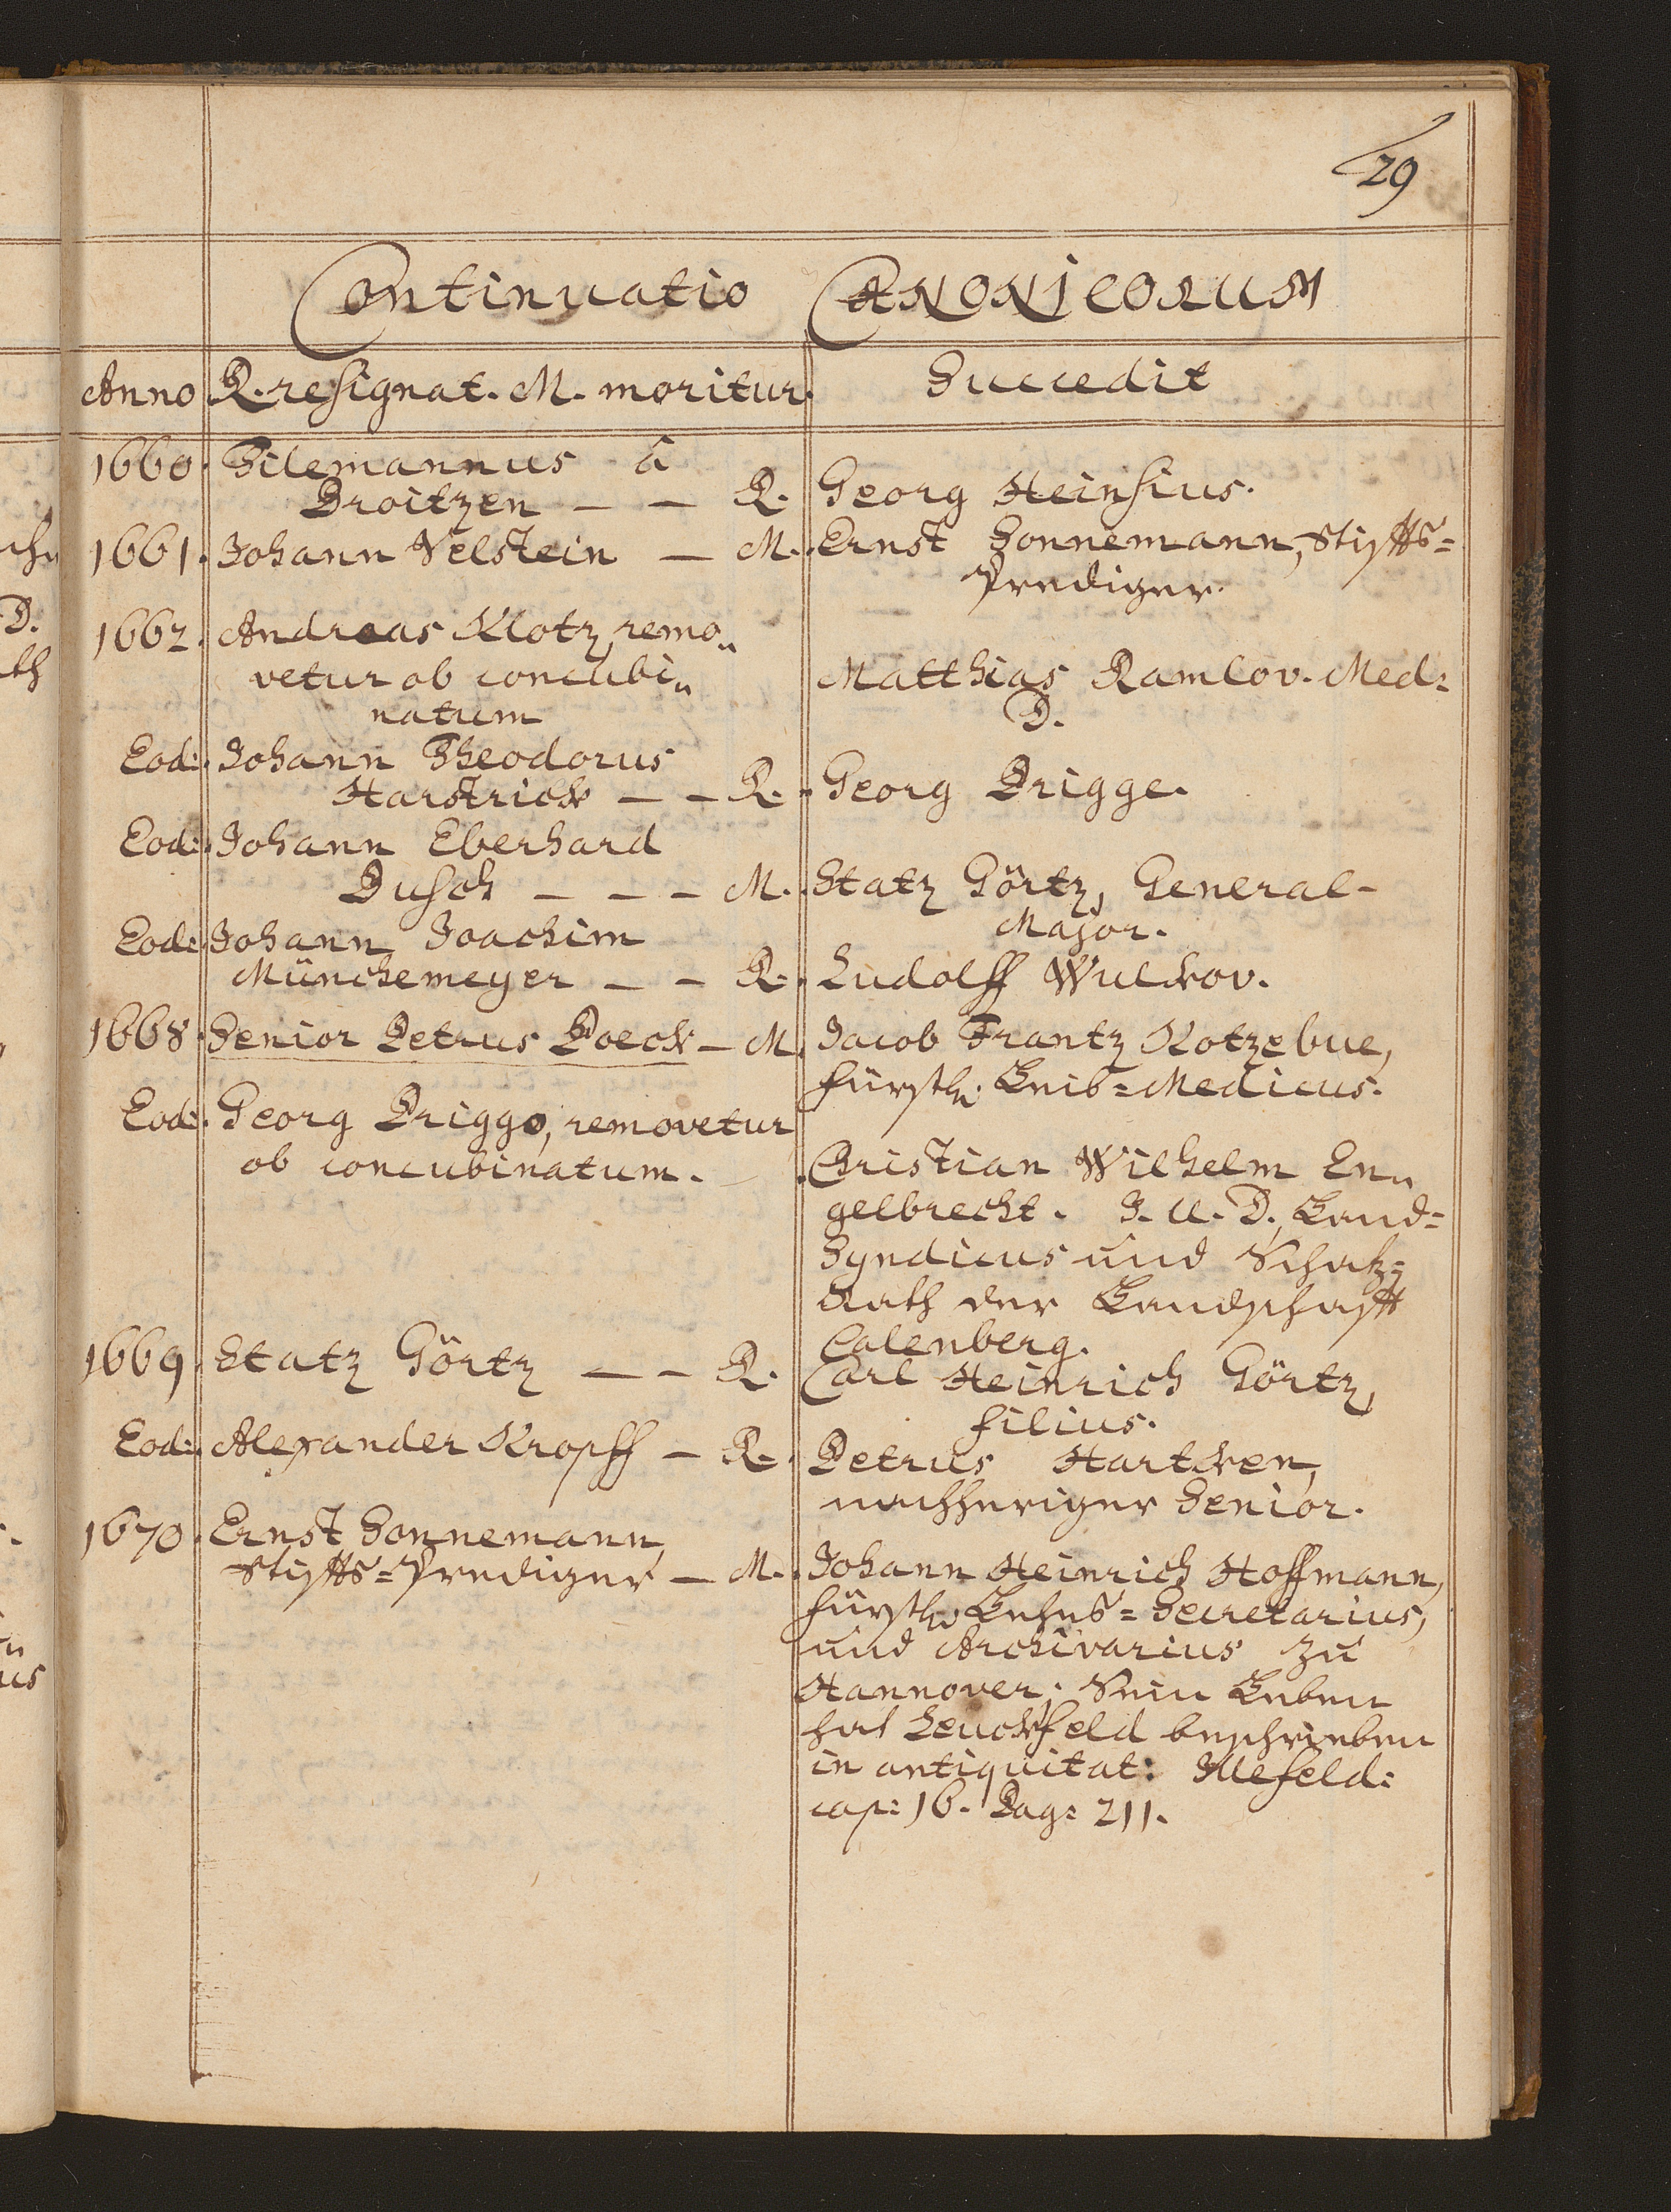 29
Continuatio CANONICORUM
Anno R. resignat. M. moritur. Succedit
1660. Tilemannus à
Broitzen — — R. Georg Heinsius.
1661. Johann Velstein — M. Ernst Sonnemann, Stiffts=
Prediger.
1662. Andreas Klotz, remo„
vetur ob concubi„ Matthias Ramlov. Med:
natum D.
Eod: Johann Theodorus
Harstrick — — R. Georg Prigge.
Eod: Johann Eberhard
Busch — — — M. Statz Görtz, General-
Eod: Johann Joachim Major.
Münchemeyer — — R. Ludolff Wulckov.
1668. Senior Petrus Poeck — M. Jacob Frantz Kotzebue,
fürstl: Leib=Medicus.
Eod: Georg Prigge, removetur
ob concubinatum. Christian Wilhelm En„
gelbrecht. J. U. D. Land=
Syndicus und Schatz=
Rath der Landschafft
Calenberg.
1669. Statz Görtz — — R. Carl Heinrich Görtz,
filius.
Eod: Alexander Kropff — R. Petrus Hartken,
nachheriger Senior.
1670. Ernst Sonnemann,
Stiffts=Prediger — M. Johann Heinrich Hoffmann,
fürstl: Lehns=Secretarius,
und Archivarius zu
Hannover; Sein Leben
hat Leuckfeld beschrieben
in antiquitat: Ilefeld:
cap: 16. Pag: 211.